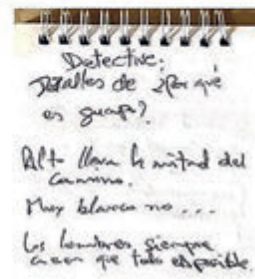 Detective:
Detalles de ¿Por qué
es guapa?
Alto lleva la mitad del
camino.
Muy blanca no...
Los hombres siempre
creen que todo es posible.